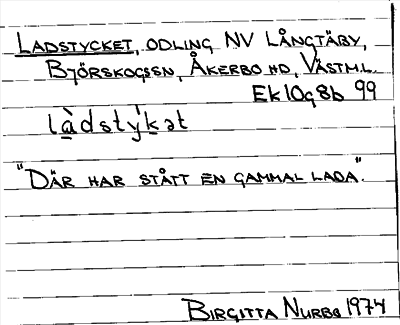 LADSTYCKET, ODLING NV LÅNGTÄBY,
BJÖRSKOGSSN, ÅKERBO HD, VÄSTML.
Ek 10g8b 99
là̱dstýḵət
"DÄR HAR STÅTT EN GAMMAL LADA".
BIRGITTA NURBO 1974